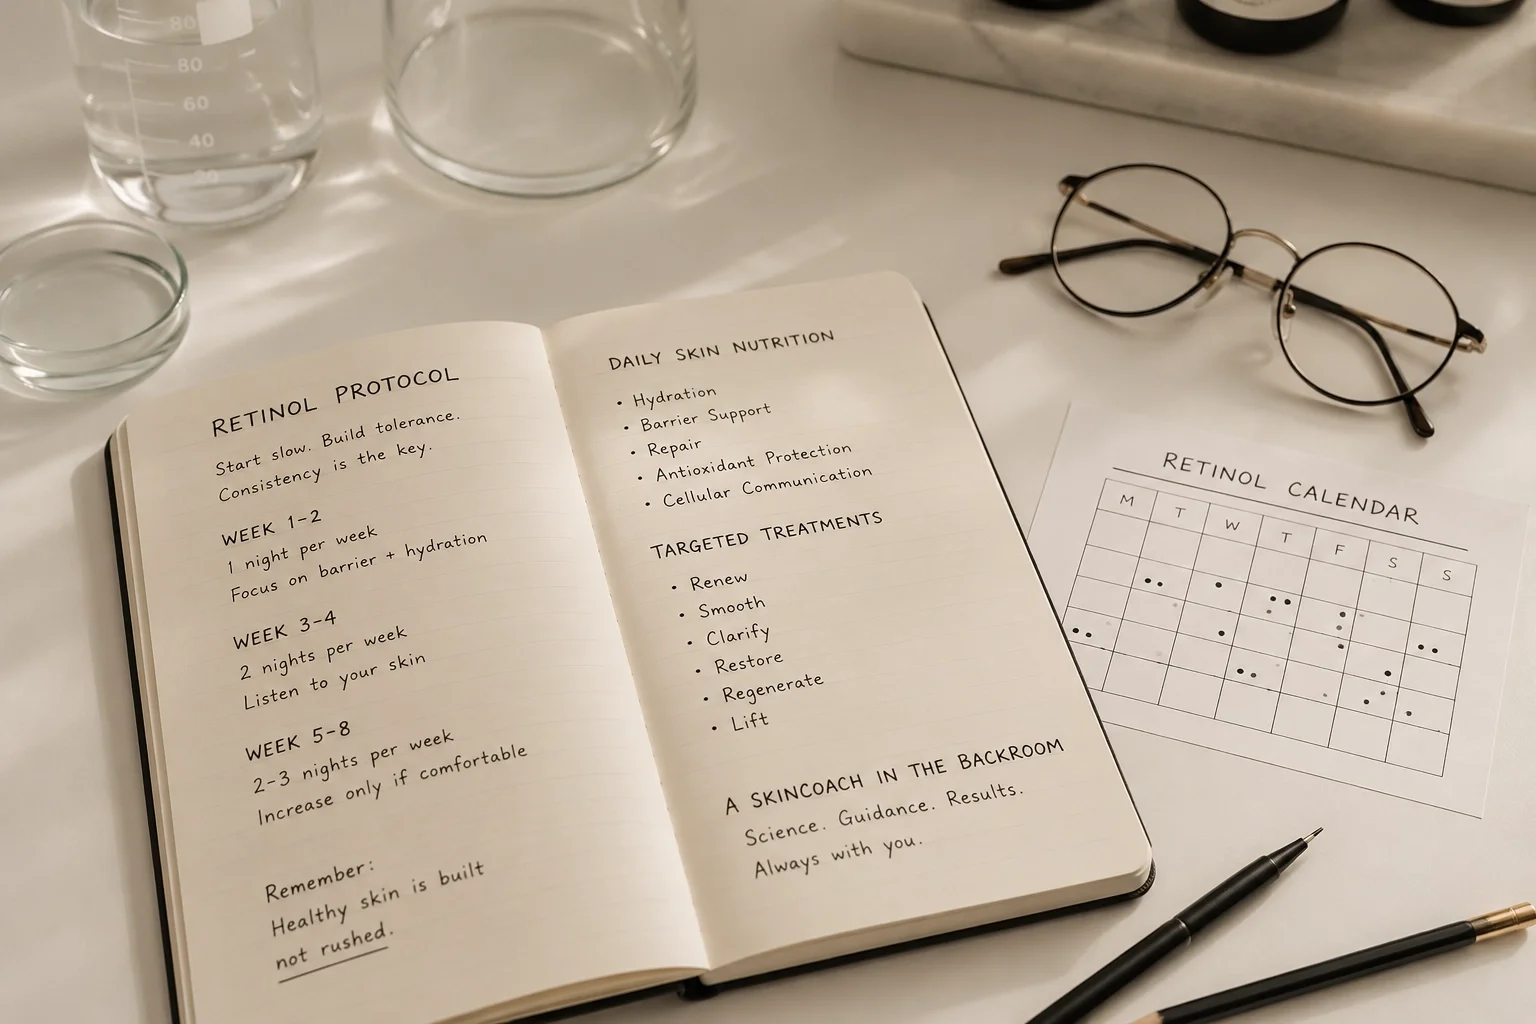 80
80
60
40
20
RETINOL PROTOCOL
Start slow. Build tolerance.
Consistency is the key.
WEEK 1-2
1 night per week
Focus on barrier + hydration
WEEK 3-4
2 nights per week
Listen to your skin
WEEK 5-8
2-3 nights per week
Increase only if comfortable
Remember:
Healthy skin is built
not rushed.
DAILY SKIN NUTRITION
• Hydration
• Barrier Support
• Repair
• Antioxidant Protection
• Cellular Communication
TARGETED TREATMENTS
• Renew
• Smooth
• Clarify
• Restore
• Regenerate
• Lift
A SKINCOACH IN THE BACKROOM
Science. Guidance. Results.
Always with you.
RETINOL CALENDAR
M T W T F S S